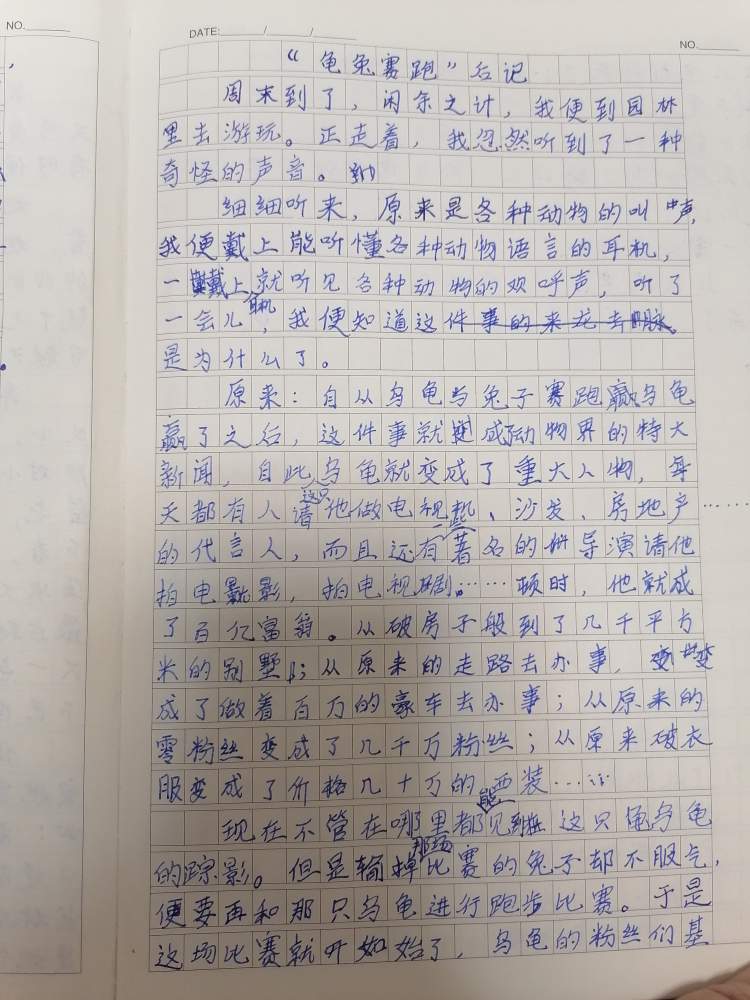 NO.
DATE: / /
NO.
“龟兔赛跑”后记
周末到了，闲余之计，我便到园林
里去游玩。正走着，我忽然听到了一种
奇怪的声音。
细细听来，原来是各种动物的叫声，
我便戴上能听懂各种动物语言的耳机，
一戴上耳机就听见各种动物的欢呼声，听了
一会儿，我便知道这件事的来龙去脉。
是为什么了。
原来：自从乌龟与兔子赛跑赢乌龟
赢了之后，这件事就成了动物界的特大
新闻，自此，乌龟就变成了重大人物，每
天都有人请这只他做电视机、沙发、房地产
的代言人，而且还有一些著名的导演请他
拍电影，拍电视剧。……顿时，他就成
了百亿富翁。从破房子般到了几千平方
米的别墅；从原来的走路去办事，变
成了做着百万的豪车去办事；从原来的
零粉丝变成了几千万粉丝；从原来破衣
服变成了价格几十万的西装……
现在不管在哪里都能见到这只乌龟
的踪影。但是输掉那场比赛的兔子却不服气，
便要再和那只乌龟进行跑步比赛。于是
这场比赛就开始了，乌龟的粉丝们基